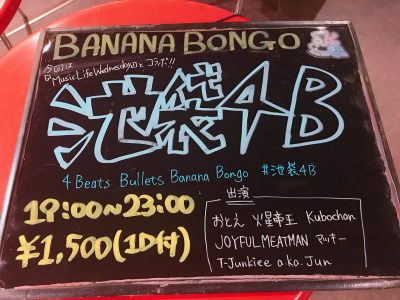 BANANA BONGO
今回は
『Music Life Wednesday』と コラボ!!
池袋4B
4 Beats Bullets Banana Bongo #池袋4B
19:00~23:00
¥1,500(1D付)
出演
おとえ 火星帝王 Kubochan
JOYFULMEATMAN アッキー
T-Junkiee a.k.a. Jun